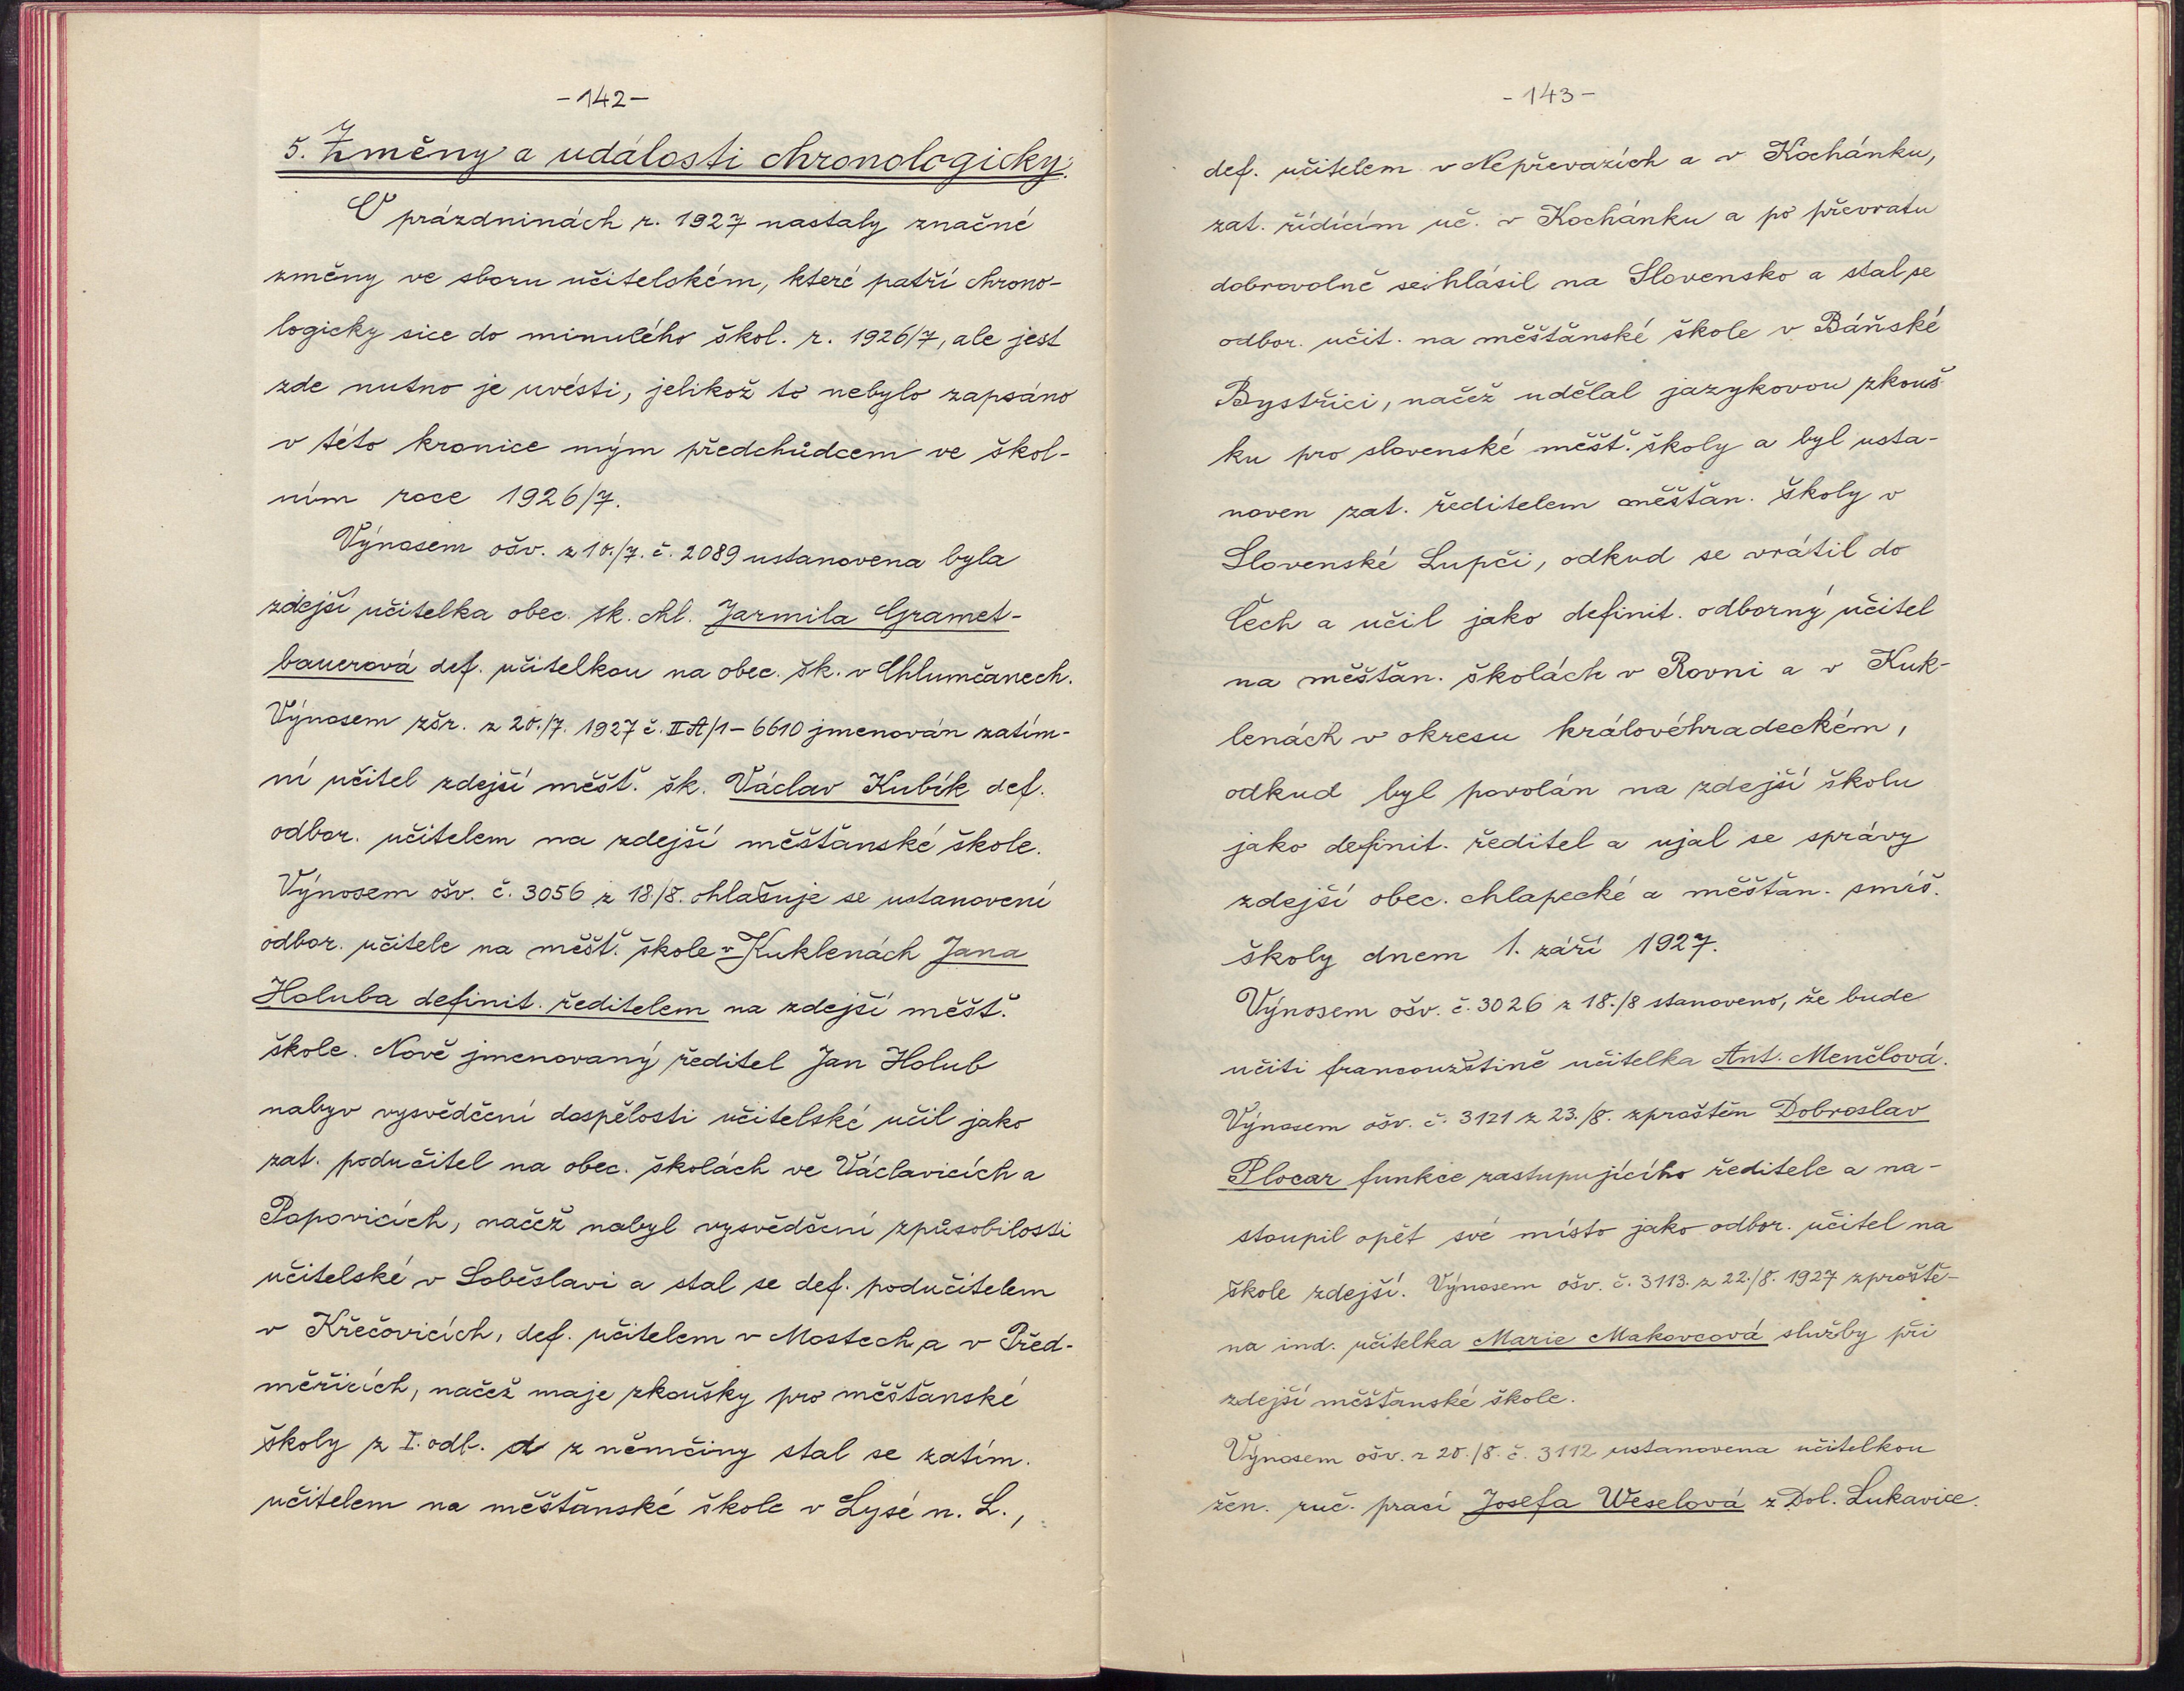 -142-
5. Změny a události chronologicky.
O prázdninách r. 1927 nastaly značné
změny ve sboru učitelském, které patří chrono-
logicky sice do minulého škol. r. 1926/7, ale jest
zde nutno je uvésti, jelikož to nebylo zapsáno
v této kronice mým předchůdcem ve škol-
ním roce 1926/7.
Výnosem ošv. z 10./7. č. 2089 ustanovena byla
zdejší učitelka obec. šk. chl. Jarmila Gramet-
bauerová def. učitelkou na obec. šk. v Chlumčanech.
Výnosem zšr. z 20./7. 1927 č. II A/1-6610 jmenován zatím-
ní učitel zdejší měšť. šk. Václav Kubík def.
odbor. učitelem na zdejší měšťanské škole.
Výnosem ošv. č. 3056 z 18./8. ohlašuje se ustanovení
odbor. učitele na měšť. škole v Kuklenách Jana
Holuba definit. ředitelem na zdejší měšť.
škole. Nově jmenovaný ředitel Jan Holub
nabyv vysvědčení dospělosti učitelské učil jako
zat. podučitel na obec. školách ve Václavicích a
Popovicích, načež nabyl vysvědčení způsobilosti
učitelské v Soběslavi a stal se def. podučitelem
v Křečovicích, def. učitelem v Mostech a v Před-
měřicích, načež maje zkoušky pro měšťanské
školy z I. odb. a z němčiny stal se zatím.
učitelem na měšťanské škole v Lysé n. L.,
-143-
def. učitelem v Nepřevazích a v Kochánku,
zat. řídícím uč. v Kochánku a po převratu
dobrovolně se hlásil na Slovensko a stal se
odbor. učit. na měšťanské škole v Báňské
Bystřici, načež udělal jazykovou zkouš
ku pro slovenské měšť. školy a byl usta-
noven zat. ředitelem měšťan. školy v
Slovenské Lupči, odkud se vrátil do
Čech a učil jako definit. odborný učitel
na měšťan. školách v Rovni a v Kuk-
lenách v okresu královéhradeckém,
odkud byl povolán na zdejší školu
jako definit. ředitel a ujal se správy
zdejší obec. chlapecké a měšťan. smíš.
školy dnem 1. září 1927.
Výnosem ošv. č. 3026 z 18./8 stanoveno, že bude
učiti francouzštině učitelka Ant. Menčlová.
Výnosem ošv. č. 3121 z 23./8. zproštěn Dobroslav
Plocar funkce zastupujícího ředitele a na-
stoupil opět své místo jako odbor. učitel na
škole zdejší. Výnosem ošv. č. 3113. z 22./8. 1927 zproště-
na ind. učitelka Marie Makovcová služby při
zdejší měšťanské škole.
Výnosem ošv. z 20./8. č. 3112 ustanovena učitelkou
žen. ruč. prací Josefa Weselová z Dol. Lukavice.